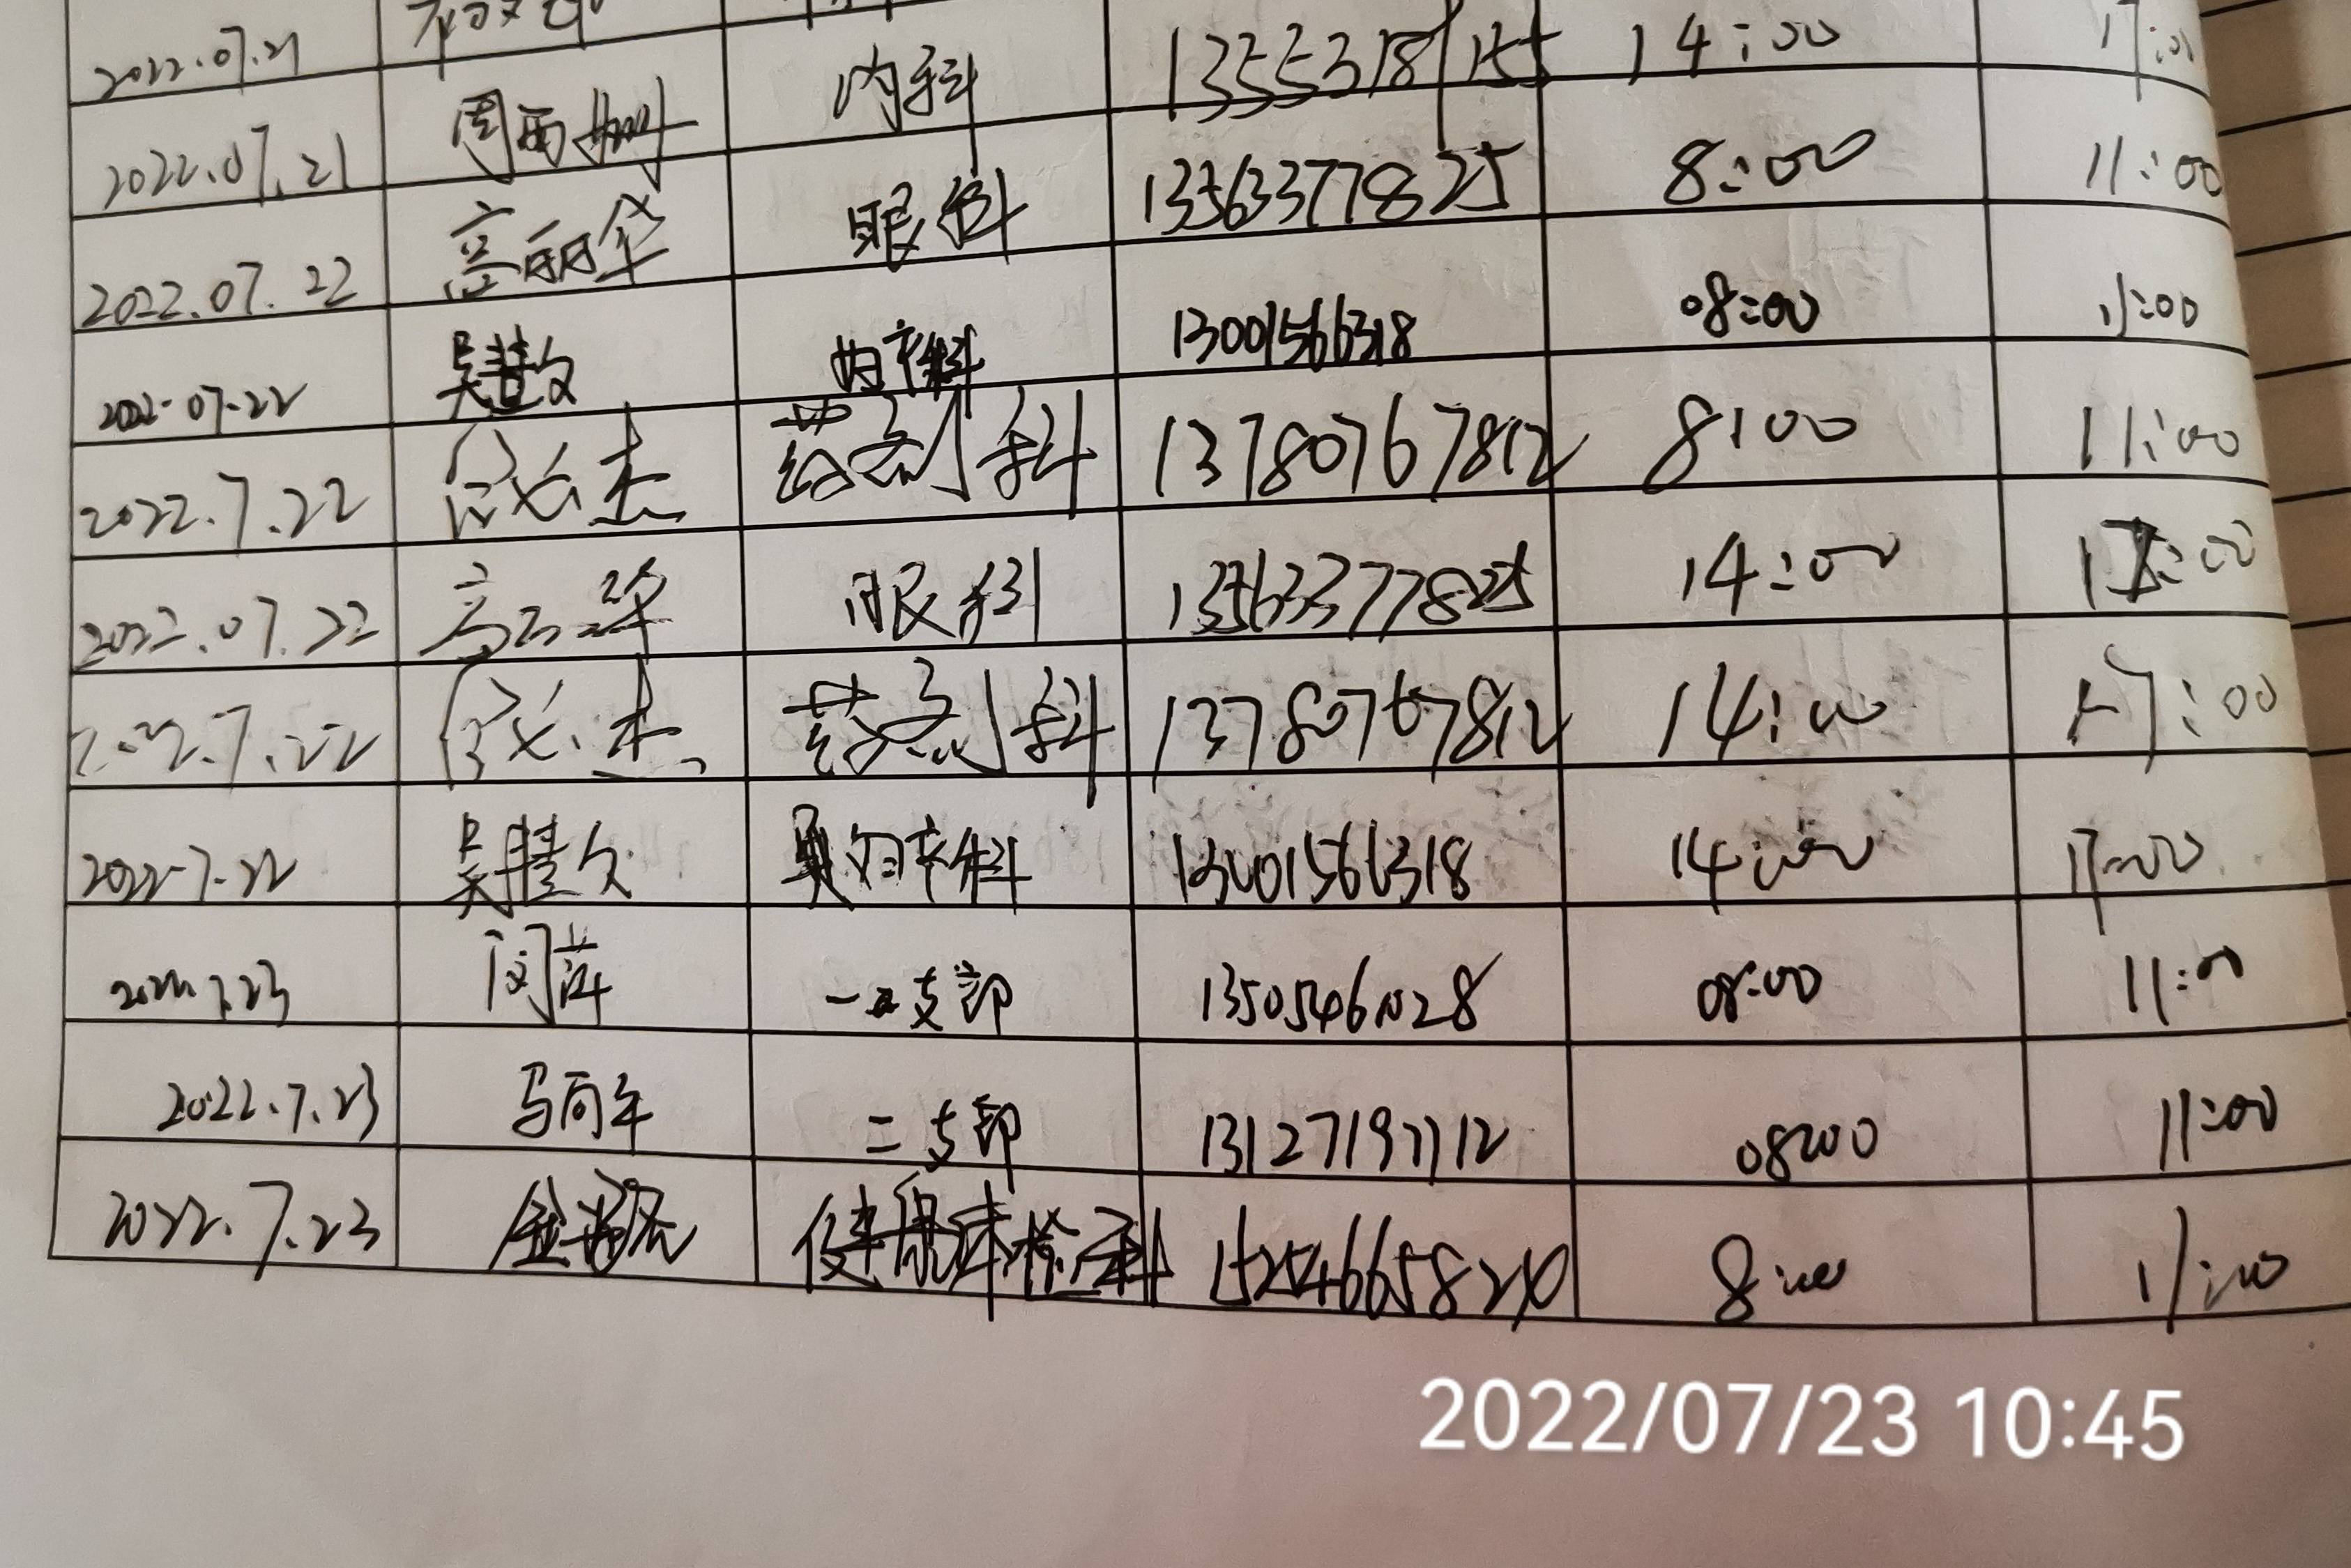 2022.07.21
2022.07.21 周丽娜 内科 13553181155 14:00 17:00
2022.07.22 高丽华 眼科 13563377825 8:00 11:00
2022.07.22 吴慧敏 妇产科 13001566318 08:00 11:00
2022.7.22 药剂科 13780767812 8:00 11:00
2022.07.22 高丽华 眼科 13563377825 14:00 17:00
2022.7.22 药剂科 13780767812 14:00 17:00
2022.7.22 吴慧 妇产科 13001566318 14:00 17:00
2022.7.23 闵萍 一支部 13505461028 08:00 11:00
2022.7.23 马向年 二支部 13127197112 08:00 11:00
2022.7.23 金 健康体检科 8:00 11:00
2022/07/23 10:45